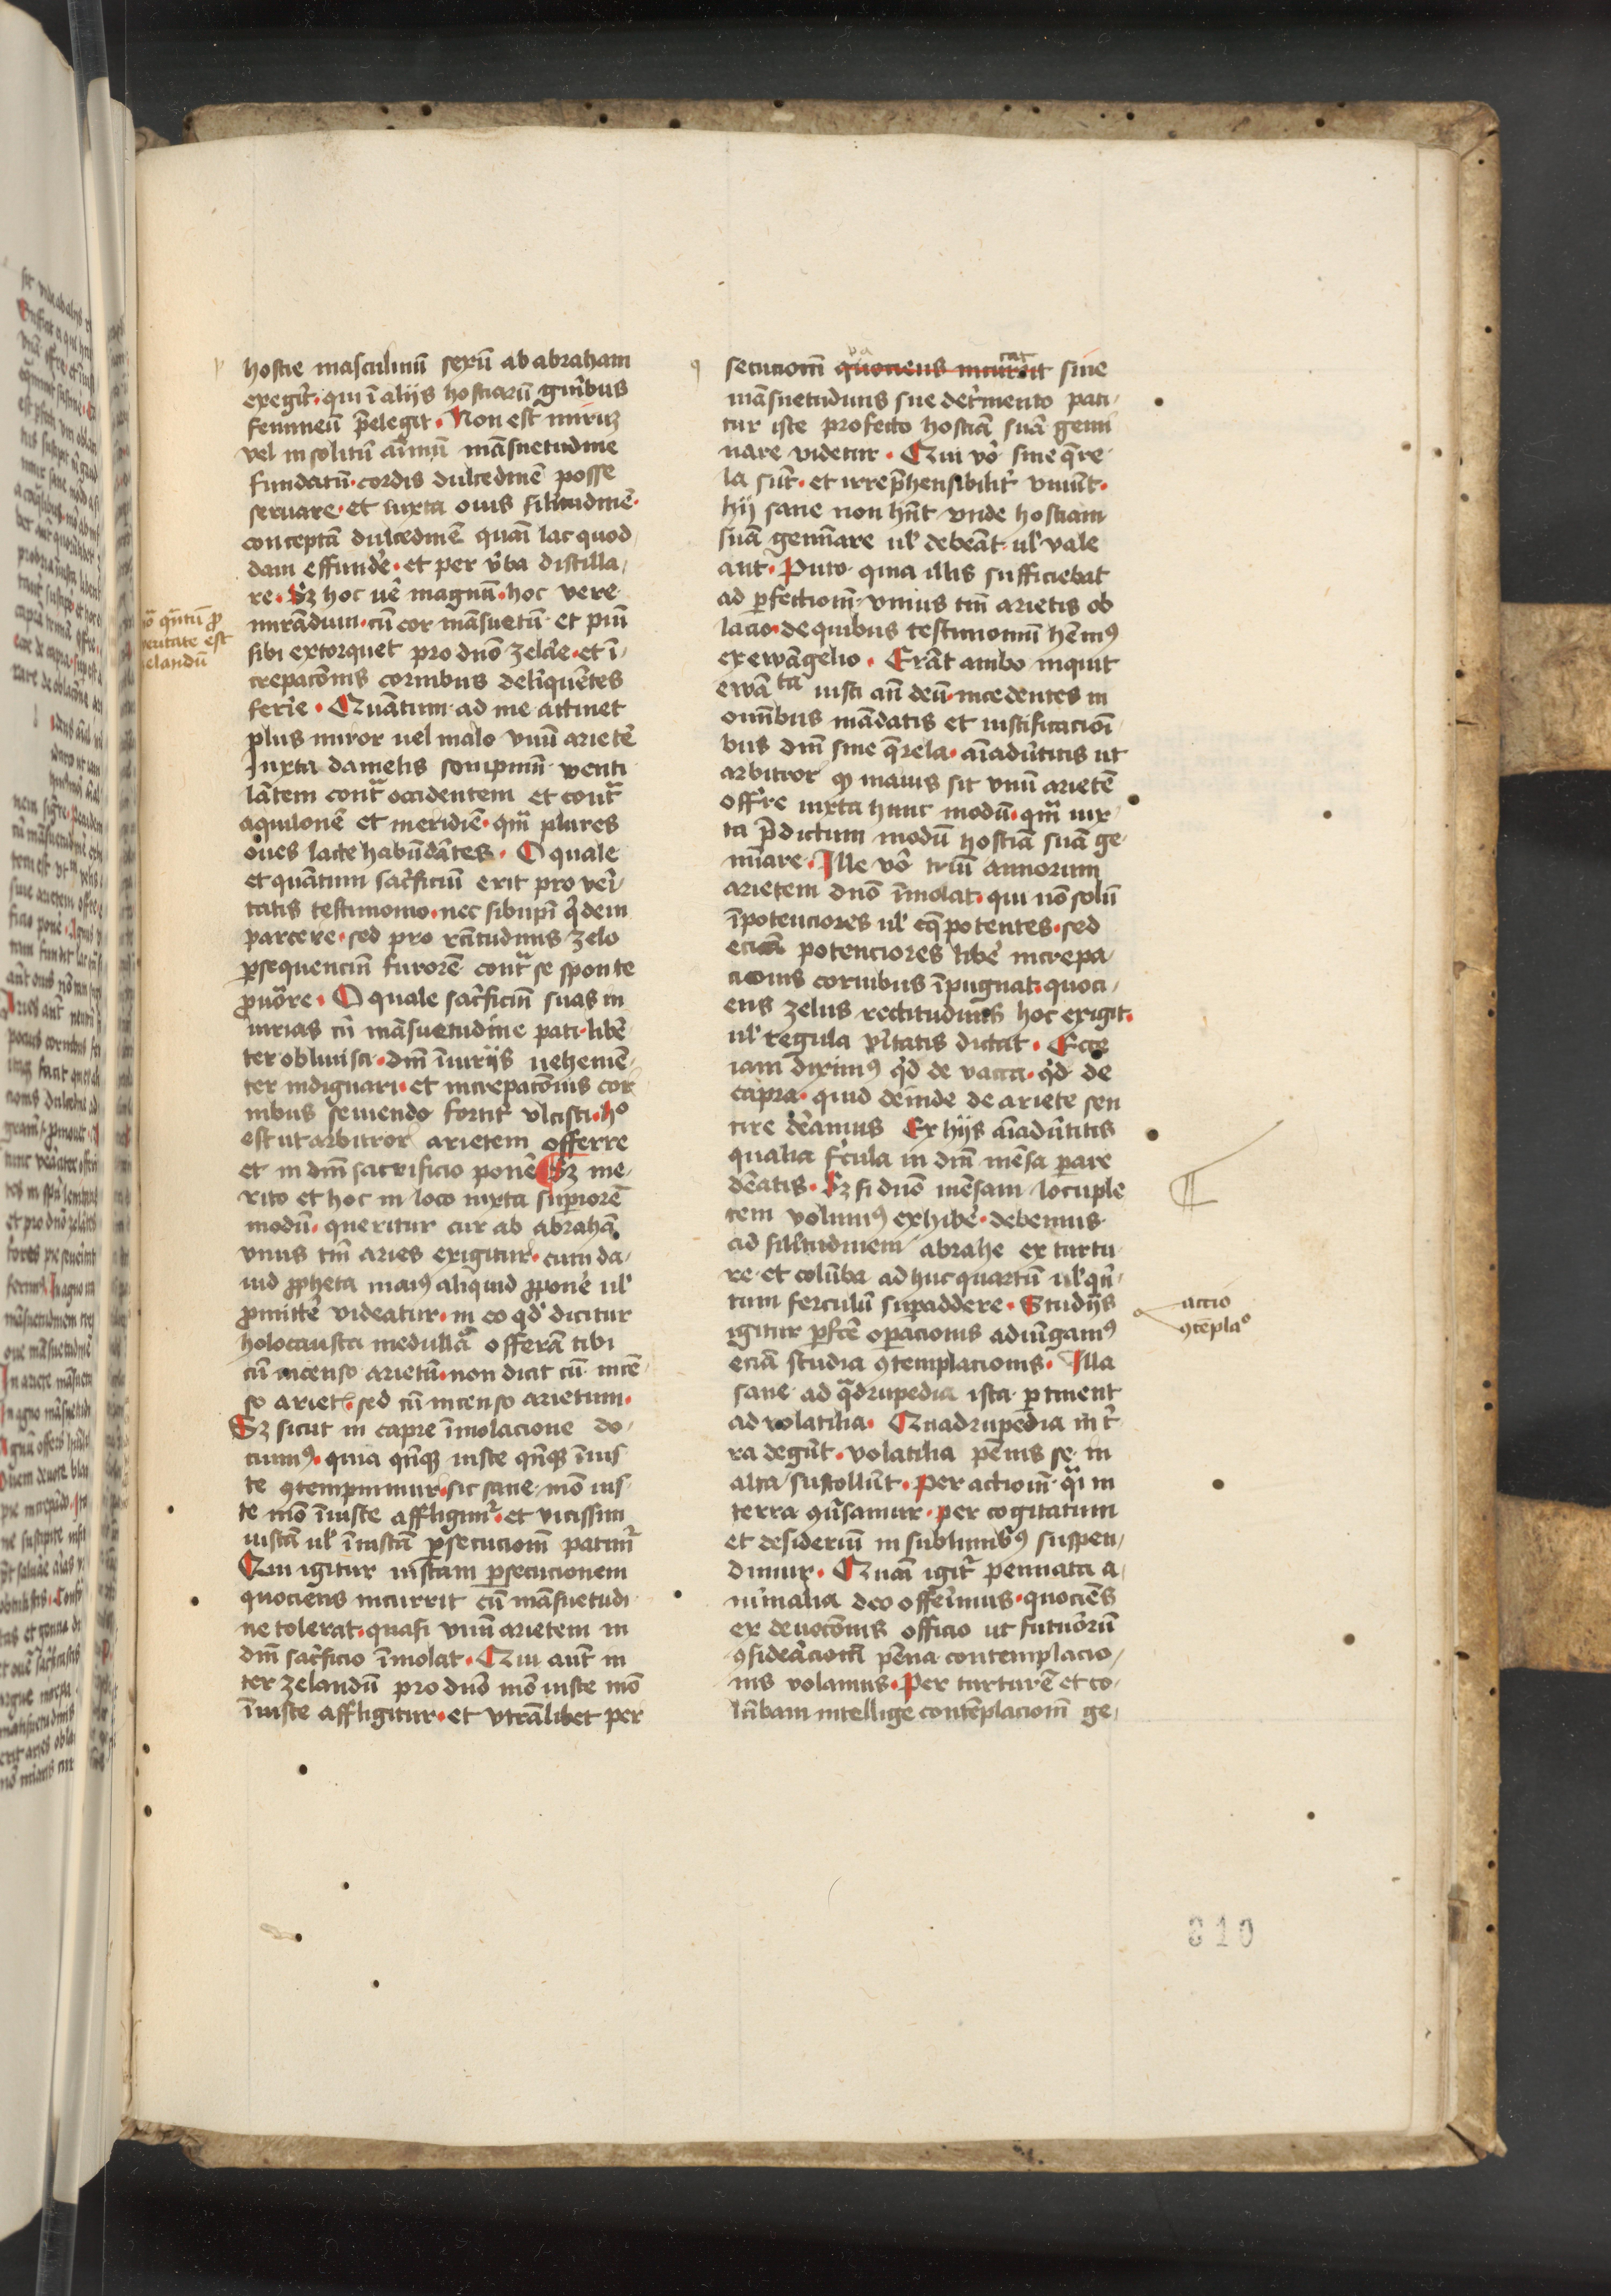 hostie masculinū sexū ab abraham
exegit̄· qui ī alijs hostiarū gn̄ibus
femineū p̄elegit · Non est miruꝫ
vel insolitū aīmū māsuetudine
fundatū· cordis dulcedinē posse
seruare· et iuxta ouis silitudinē·
conceptā dulcedinē quasi lac quod
dam effundē· et per v̄ba distilla/
re· Sꝫ hoc uē magnū· hoc vere
mirādum· cū cor māsuetū et piū
sibi extorquet pro dnō zelāe· et ī
crepatōnis cornibus delīquētes
ferīe · Quātum ad me attinet
plus miror uel malo vnū arietē
Iuxta danielis sompniū venti
lātem cont̄ occidentem et cont̄
aquilonē et meridiē· qm̄ plures
oues lacte habūdātes · O quale
et quātum sac̄ficiū erit pro veī
tatis testimonio· nec sibiip̄i q̄dem
parcere· sed pro rc̄itudinis zelo
ꝑsequenciū furorē cont̄ se sponte
ꝓuōre · O quale sac̄ficiū suas in
iurias cū māsuetudine pati· libē
ter obliuisci· dnī īiurijs uehemē
ter indignari· et increpatōnis cor
nibus seuiendo fortit̄ vlcisci· h°
est ut arbitror arietem offerre
et in dnī sacrificio ponē Sꝫ me/
rito et hoc in loco iuxta suꝑiorē
modū· queritur cur ab abrahā
vnus tm̄ aries exigitur· cum da/
uid ꝓpheta maiꝰ aliquid ꝓponē ul̄
ꝓmittē videatur· in eo qd̄ dicitur
holocausta medullā offerā tibi
cū incenso arietū· non dicit cū incē
so ariet̄· sed cū incenso arietum·
Sꝫ sicut in capre īmolacione do/
cuimꝰ· quia qn̄qꝫ iuste qn̄qꝫ īius
te ꝯtempnimur· sic sane mō ius/
te mō īiuste affligimr̄· et vicissim
iustā ul̄ īiustā ꝑsecucionī patimr̄
Qui igitur iustam ꝑsecucionem
quociens incurrit cū māsuetudi
ne tolerat· quasi vnū arietem in
dnī sac̄ficio īmolat · Qui aut̄ in
ter zelandū pro dnō mō iuste mō
īiuste affligitur· et vtrālibet per
iō qn̄tū ꝓ
ueritate est
zelandū
secucionī quociens incurrit sine
māsuetudinis sue det̄mento pati/
tur iste profecto hostiā suā gemi
nare videtur · Qui vō sine q̄re
la sūt· et irrep̄hensibilit̄ viuūt·
hij sane non hn̄t vnde hostiam
suā gemīare ul̄ debeāt ul̄ vale
ant· Puto quia illis sufficiebat
ad ꝑfectionī vnius tm̄ arietis ob
lacio· de quibus testimoniū hēmꝰ
ex ewāgelio · Erāt ambo inquit
ewāta iusti an̄ deū· incedentes in
omībus mādatis et iustificacioī
bus dnī sine q̄rela· aīaduītis ut
arbitror qꝫ maius sit vnū arietē
offr̄e iuxta hunc modū· qm̄ iux/
ta p̄dictum modū hostiā suā ge/
mīare · Ille vō triū annorum
arietem dnō īmolat· qui nō solū
īpotenciores ul̄ eq̄ potentes· sed
eciā potenciores libē increpa/
cionis cornibus īpugnat· quoci/
ens zelus rectitudinis hoc exigit·
ul̄ regula v̄itatis dictat · Ecce
iam diximꝰ qd̄ de vacca· qd̄ de
capra· quid deinde de ariete sen
tire dēamus Ex hijs aīaduītis
qualia f̄cula in dnī mēsa ꝑare
dēatis · Sꝫ si dnō mēsam locuple
tem volumꝰ exhibē· debemus
ad silitudinem abrahe ex turtu/
re et colūba ad huc quartū ul̄ qn̄/
tum ferculū suꝑaddere · Studijs
igitur ꝑfc̄e oꝑacionis adiūgamꝰ
eciā studia ꝯtemplacionis · Illa
sane ad q̄drupedia ista ꝑtinent
ad volatilia· Quadrupedia in t̄
ra degūt· volatilia pēnis se in
alta sustollūt· Per actionī q̄i in
terra ꝯūsamur· per cogitatum
et desideriū in sublimibꝰ suspen/
dimur · Quasi igit̄ pennata a/
nimalia deo offerimus· quociēs
ex deuocōnis officio ut futuōrū
ꝯsideācionī pēna contemplacio/
nis volamus· Per turturē et co/
lūbam intellige contēplacionī ge/
actio
ꝯtēpla°
310